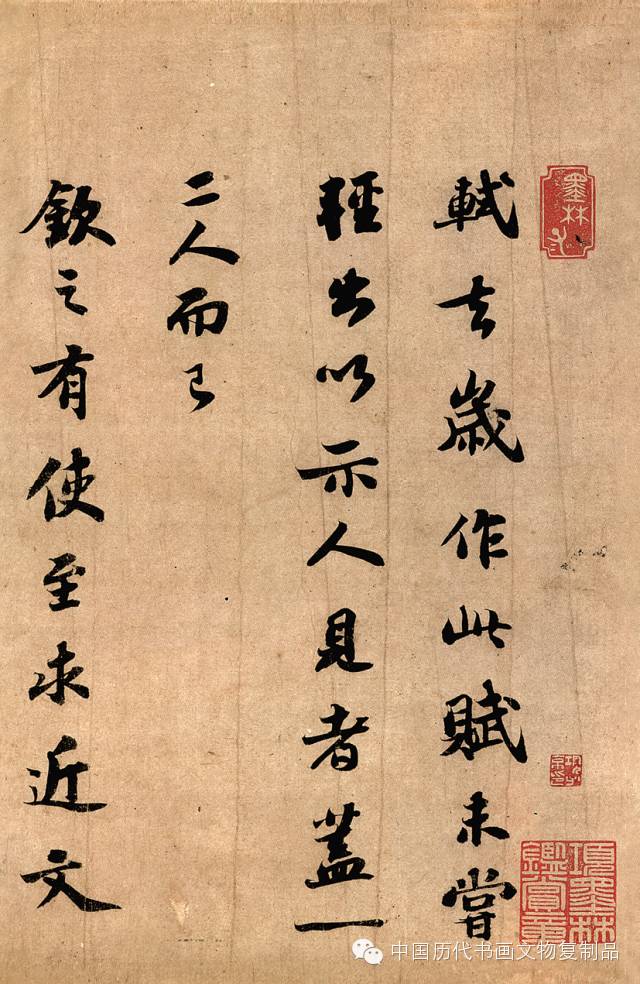 軾去歲作此賦未嘗
輕出以示人見者蓋一
二人而已
欽之有使至求近文
墨林
項墨林鑑賞章
中国历代书画文物复制品